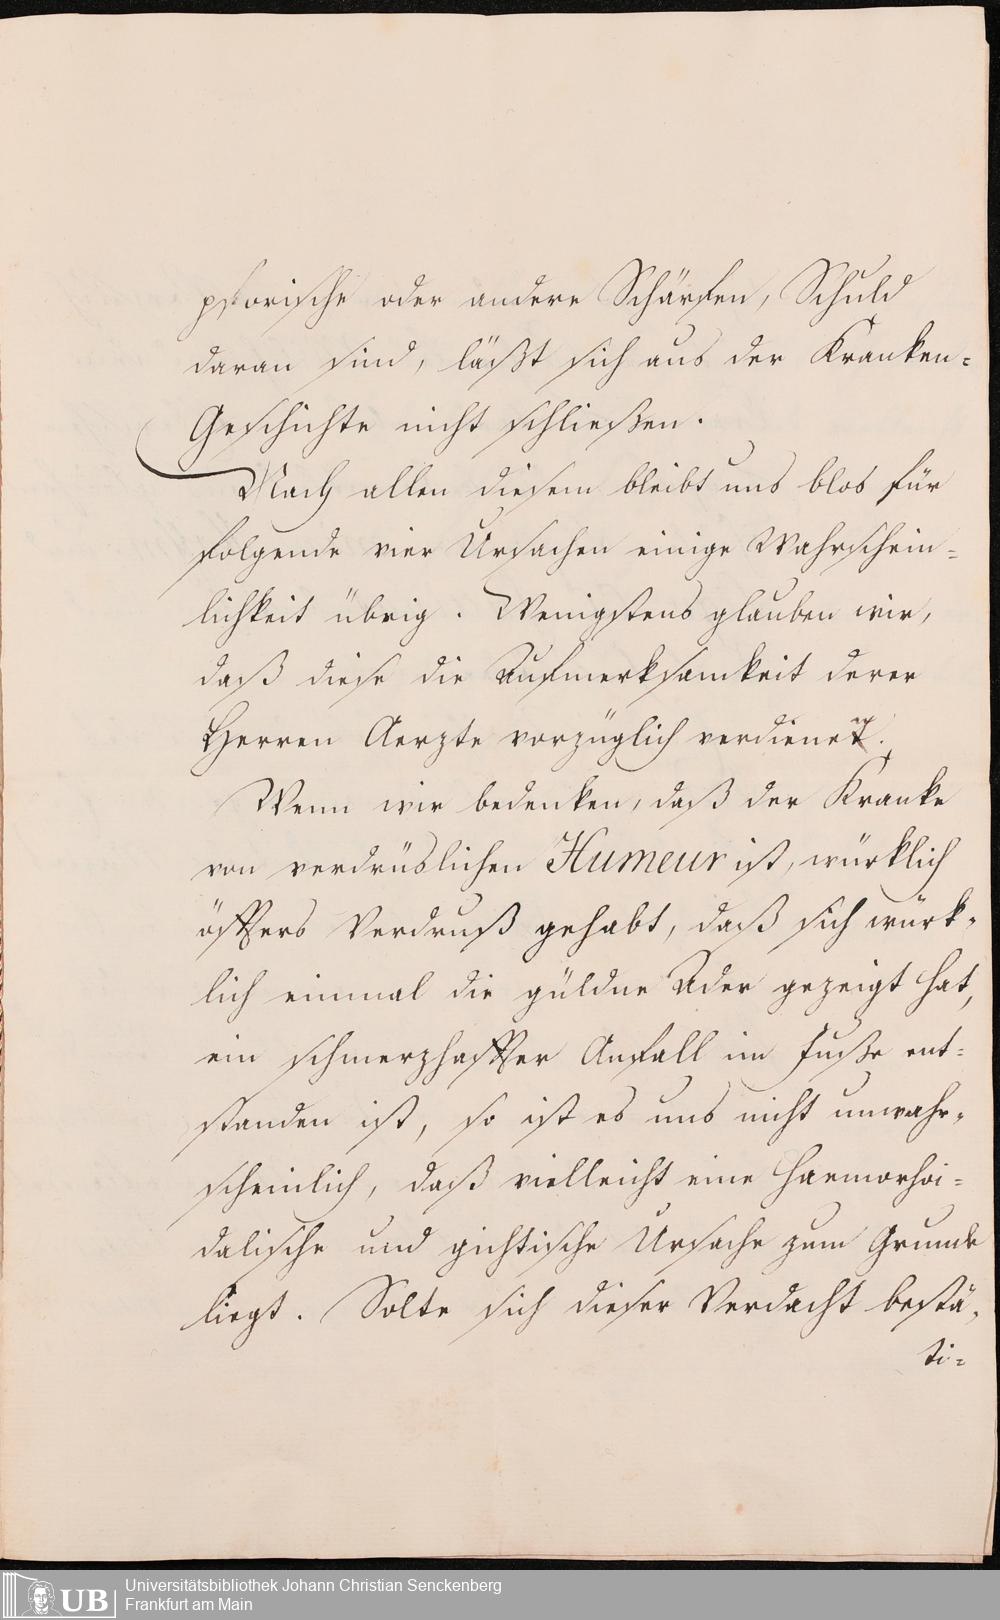 psorische oder andere Schärfen, Schuld
daran sind, läßt sich aus der Kranken-
Geschichte nicht schließen.
Nach allen diesem bleibt uns blos für
folgende vier Ursachen einige Wahrschein-
lichkeit übrig. Wenigstens glauben wir,
daß diese die Aufmerksamkeit derer
Herren Aerzte vorzüglich verdienen.
Wenn wir bedenken, daß der Kranke
von verdrüslichen Humeur ist, würklich
öffters Verdruß gehabt, daß sich würk-
lich einmal die güldne Ader gezeigt hat,
ein schmerzhaffter Anfall im Fuße ent-
standen ist, so ist es uns nicht unwahr-
scheinlich, daß vielleicht eine haemorhoi-
dalische und gichtische Ursache zum Grunde
liegt. Solte sich dieser Verdacht bestä-
ti-
UB
Universitätsbibliothek Johann Christian Senckenberg
Frankfurt am Main